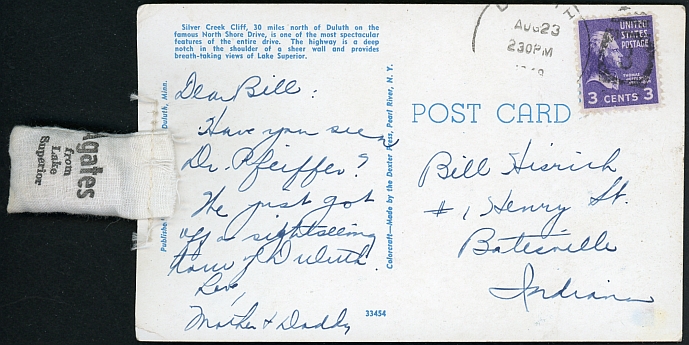 Silver Creek Cliff, 30 miles north of Duluth on the
famous North Shore Drive, is one of the most spectacular
features of the entire drive. The highway is a deep
notch in the shoulder of a sheer wall and provides
breath-taking views of Lake Superior.
Dear Bill:
Have you seen
Dr. Pfeiffer?
We just got
off a sightseeing
tour of Duluth.
Love,
Mother & Daddy
Agates
from
Lake
Superior
Duluth, Minn.
Colorcraft—Made by the Dexter Press, Pearl River, N. Y.
33454
POST CARD
AUG 23
230PM
UNITED
STATES
POSTAGE
THOMAS
3 CENTS 3
Bill Hisrich
#1 Henry St.
Batesville
Indiana